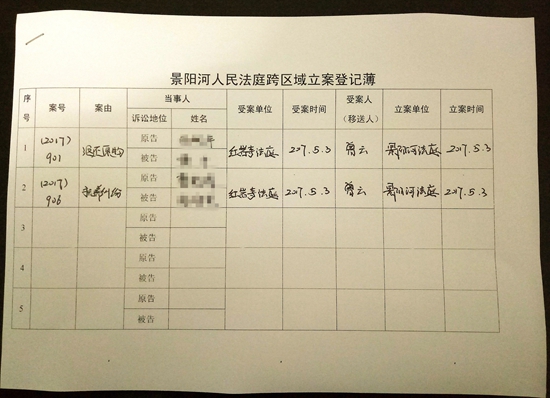 景阳河人民法庭跨区域立案登记薄
序号 案号 案由 当事人 受案单位 受案时间 受案人（移送人） 立案单位 立案时间
诉讼地位 姓名
1 (2017) 901 退还原物 原告 红岩寺法庭 2017.5.3 曾云 景阳河法庭 2017.5.3
被告
2 (2017) 906 原告 红岩寺法庭 2017.5.3 曾云 景阳河法庭 2017.5.3
被告
3 原告
被告
4 原告
被告
5 原告
被告